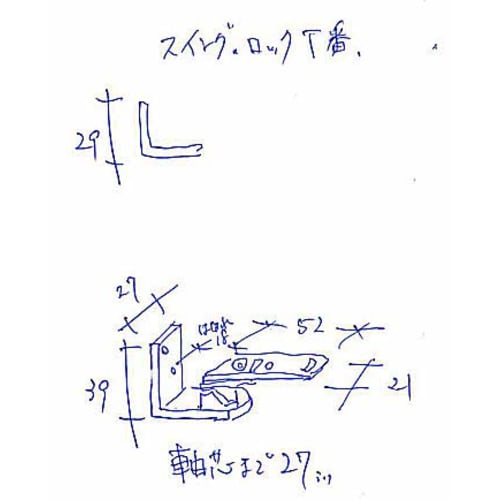 スイング・ロック丁番.
29
27
18
52
39
21
軸芯まで27㍉